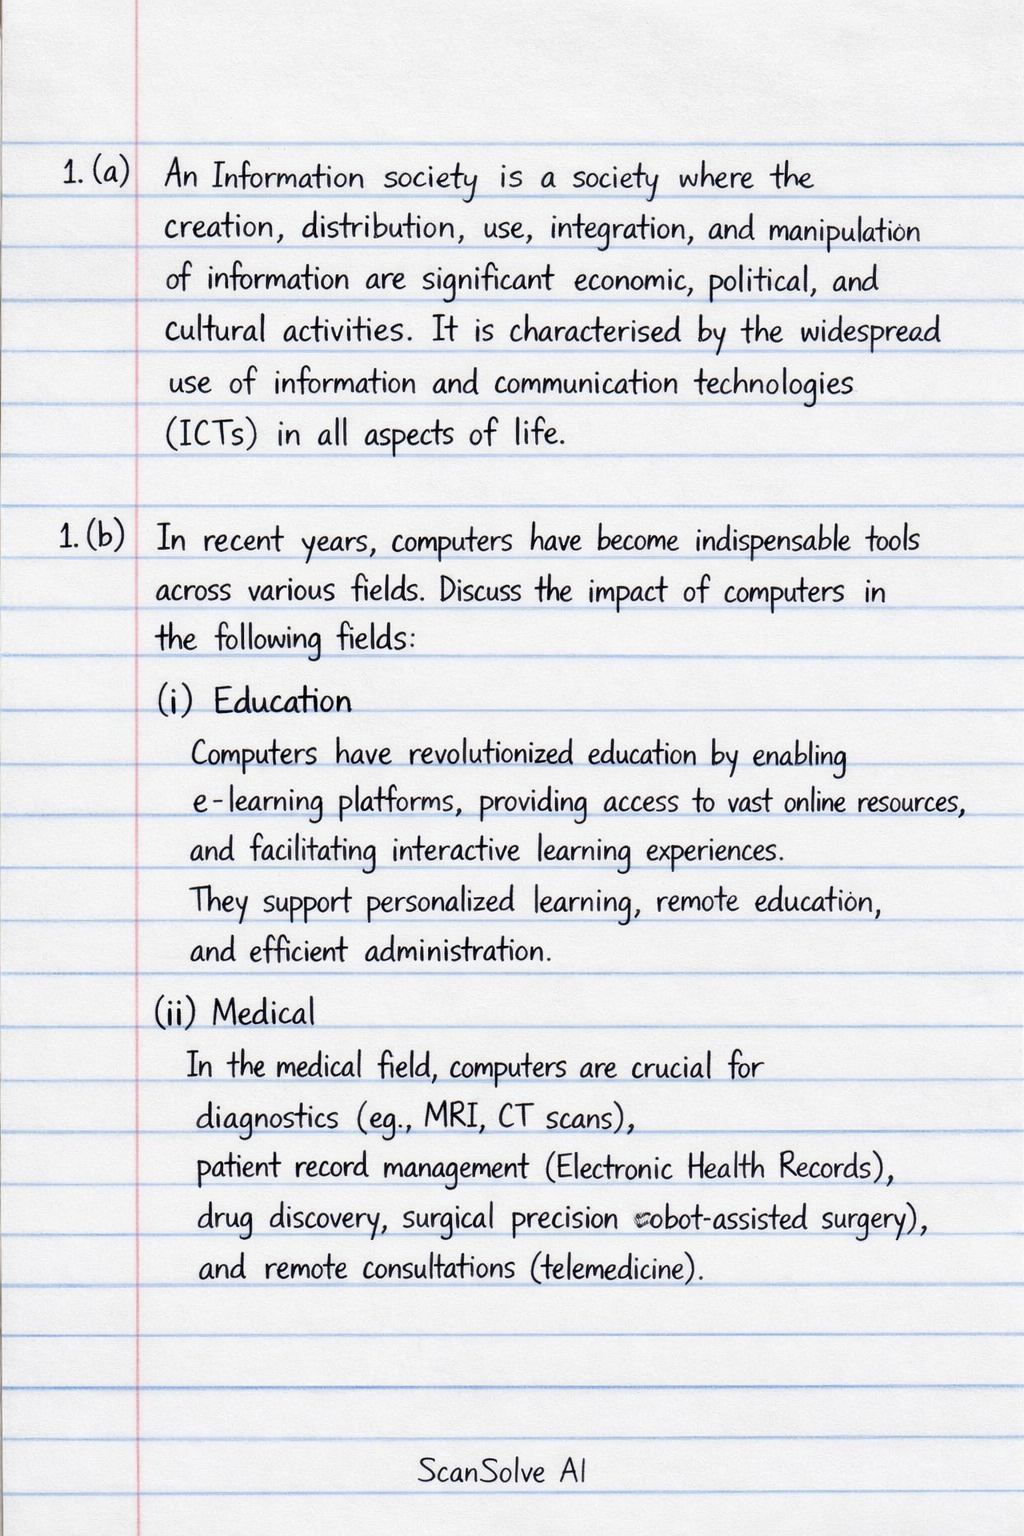 1. (a) An Information society is a society where the
creation, distribution, use, integration, and manipulation
of information are significant economic, political, and
cultural activities. It is characterised by the widespread
use of information and communication technologies
(ICTs) in all aspects of life.
1. (b) In recent years, computers have become indispensable tools
across various fields. Discuss the impact of computers in
the following fields:
(i) Education
Computers have revolutionized education by enabling
e-learning platforms, providing access to vast online resources,
and facilitating interactive learning experiences.
They support personalized learning, remote education,
and efficient administration.
(ii) Medical
In the medical field, computers are crucial for
diagnostics (eg., MRI, CT scans),
patient record management (Electronic Health Records),
drug discovery, surgical precision obot-assisted surgery),
and remote consultations (telemedicine).
ScanSolve AI